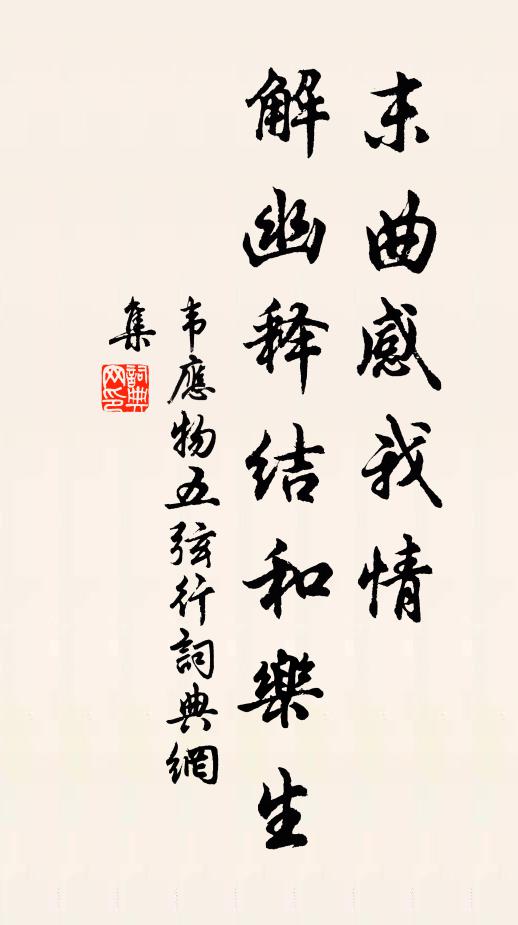 末曲感我情
解幽释结和樂生
韦應物五弦行詞典網
集
詞典网印